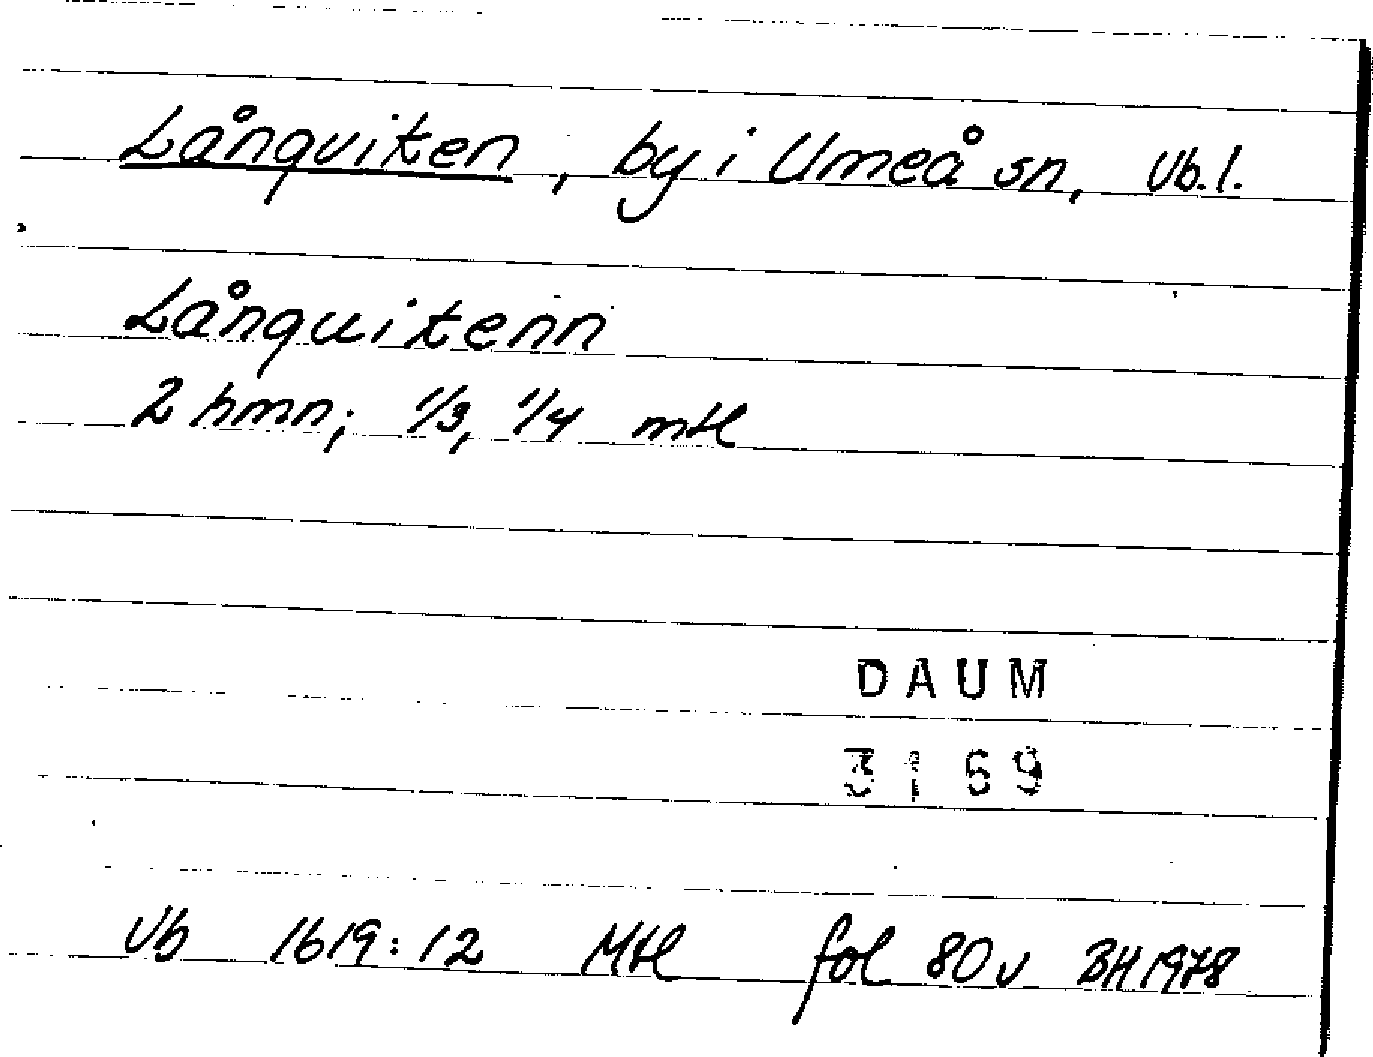 Långviken, by i Umeå sn, Vb. l.
Långuikenn
2 hmn; 1/3, 1/4 mtl
DAUM
3169
Vb 1619:12 Mtl fol 80v BH 1978